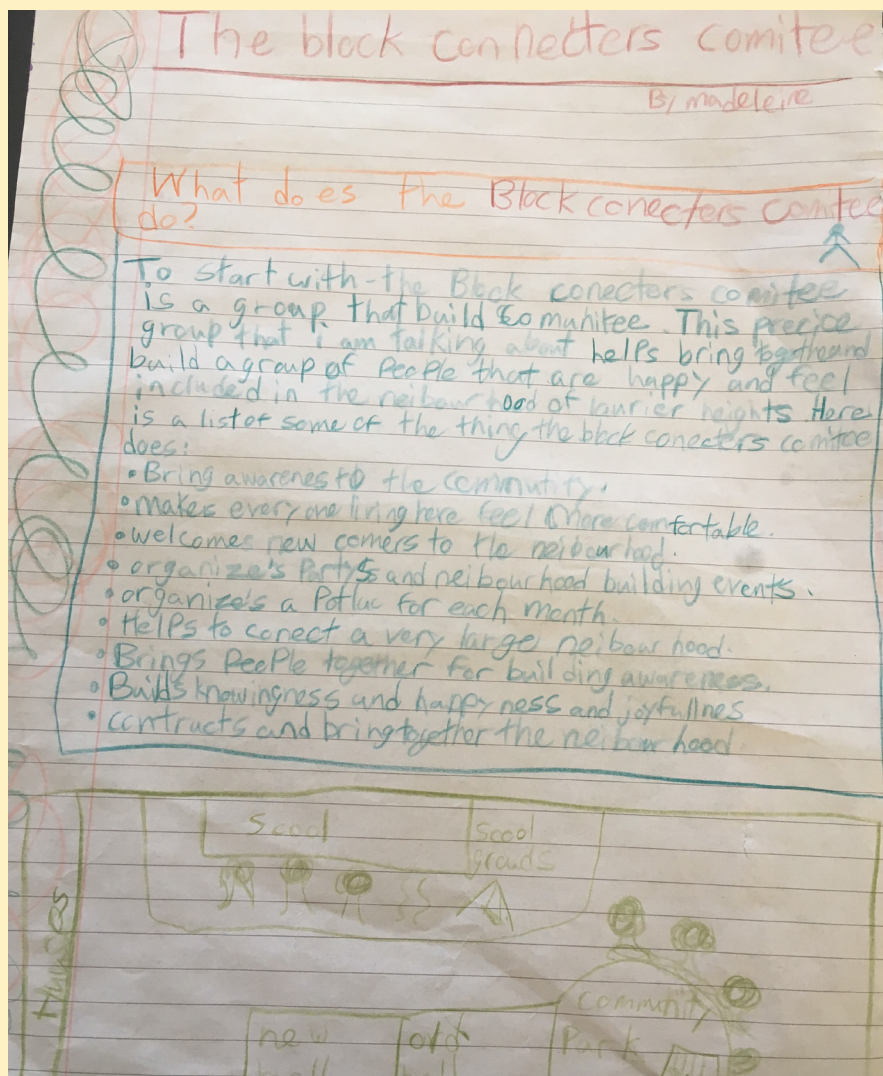 The block connecters comitee
By madeleine
What does the Block conecters comitee
do?
To start with-the Block conectors comitee
is a group that build comunitee. This precice
group that i am talking about helps bring
build a group of People that are happy and feel
included in the neibourhood of laurier heights. Here
is a list of some of the thing the block conecters comitee
does:
• Bring awarenes to the community.
• makes everyone living here feel more comfortable.
• welcomes new comers to the neibourhood.
• organize's Partys and neibourhood building events.
• organize's a Potluc for each month.
• Helps to conect a very large neibour hood.
• Brings People together for building awarenes.
• Builds knowingness and happyness and joyfullnes
• contracts and bring together the neibour hood.
Scool
Scool
grouds
Houses
community
Park
new
old